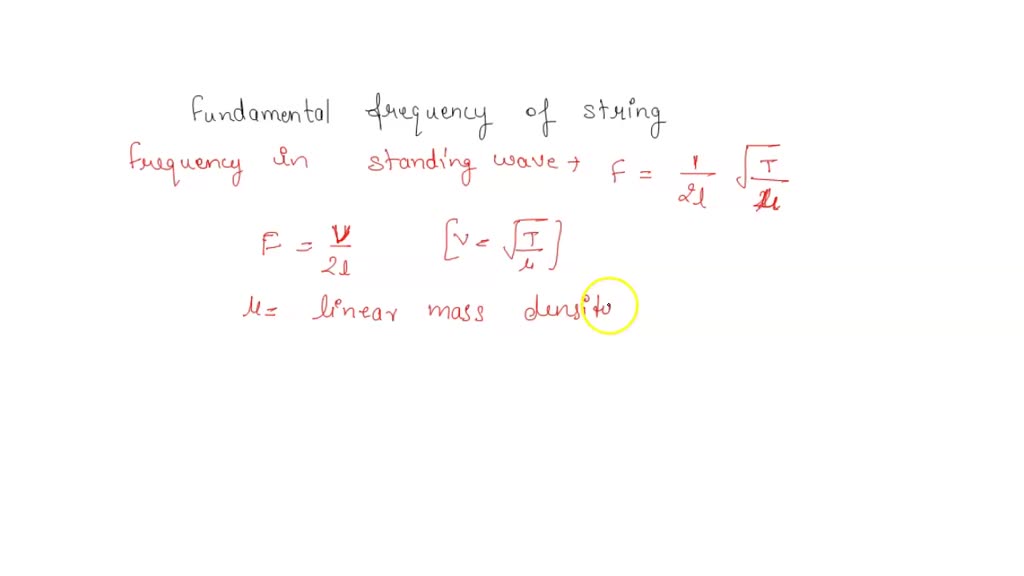 Fundamental frequency of string
frequency in standing wave → F = 1/2l √T/μ
F = V/2l [v = √T/μ]
μ= linear mass densito